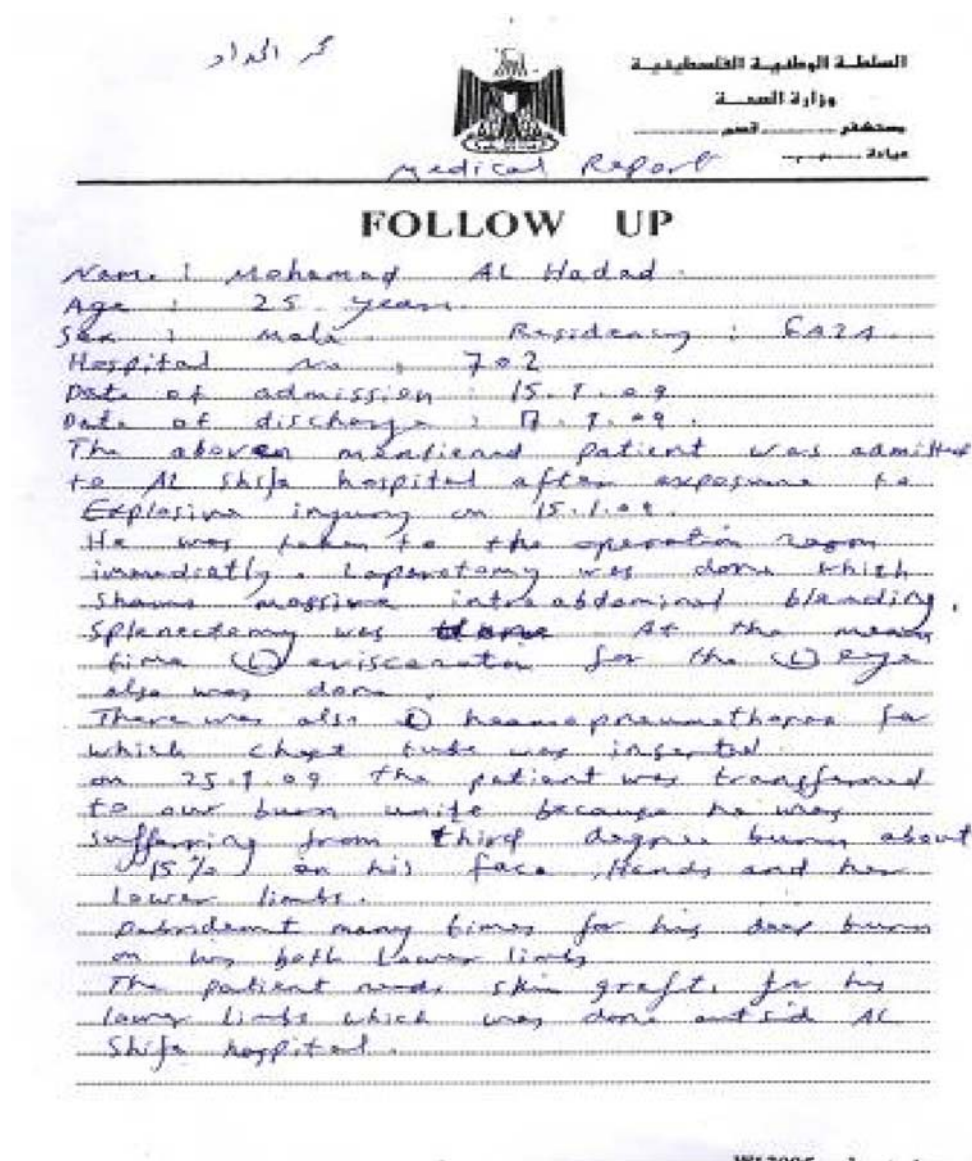 محمد الحداد
السلطة الوطنية الفلسطينية
وزارة الصحة
مستشفى ........... قسم ...........
عيادة ...........
Medical Report
FOLLOW UP
Name : Mohamad AL Hadad.
Age : 25 years
Sex : male Residency : GAZA.
Hospital no : 702
Date of admission : 15.1.09
Date of discharge : .09.
The above mentioned patient was admitted
to AL Shifa hospital after exposure to
Explosive ingury on 15.1.09.
He was taken to the operation room
immediatly. Laparotomy was done which
shows massive intraabdominal bleeding.
Splenectomy was done. At the mean
time (L) evisceration for the (L) eye
also was done.
There was also heamopneumothorax for
which chest tube was inserted.
on 25.1.09 the patient was transferred
to our burn unite because he was
suffering from third degree burn about
(15%) on his face, Hands and her
lower limbs.
Debridemt many times for his deep burn
on his both Lower limbs
The patient needs skin graft. for his
lower limbs which was done outsid AL
Shifa hospital.